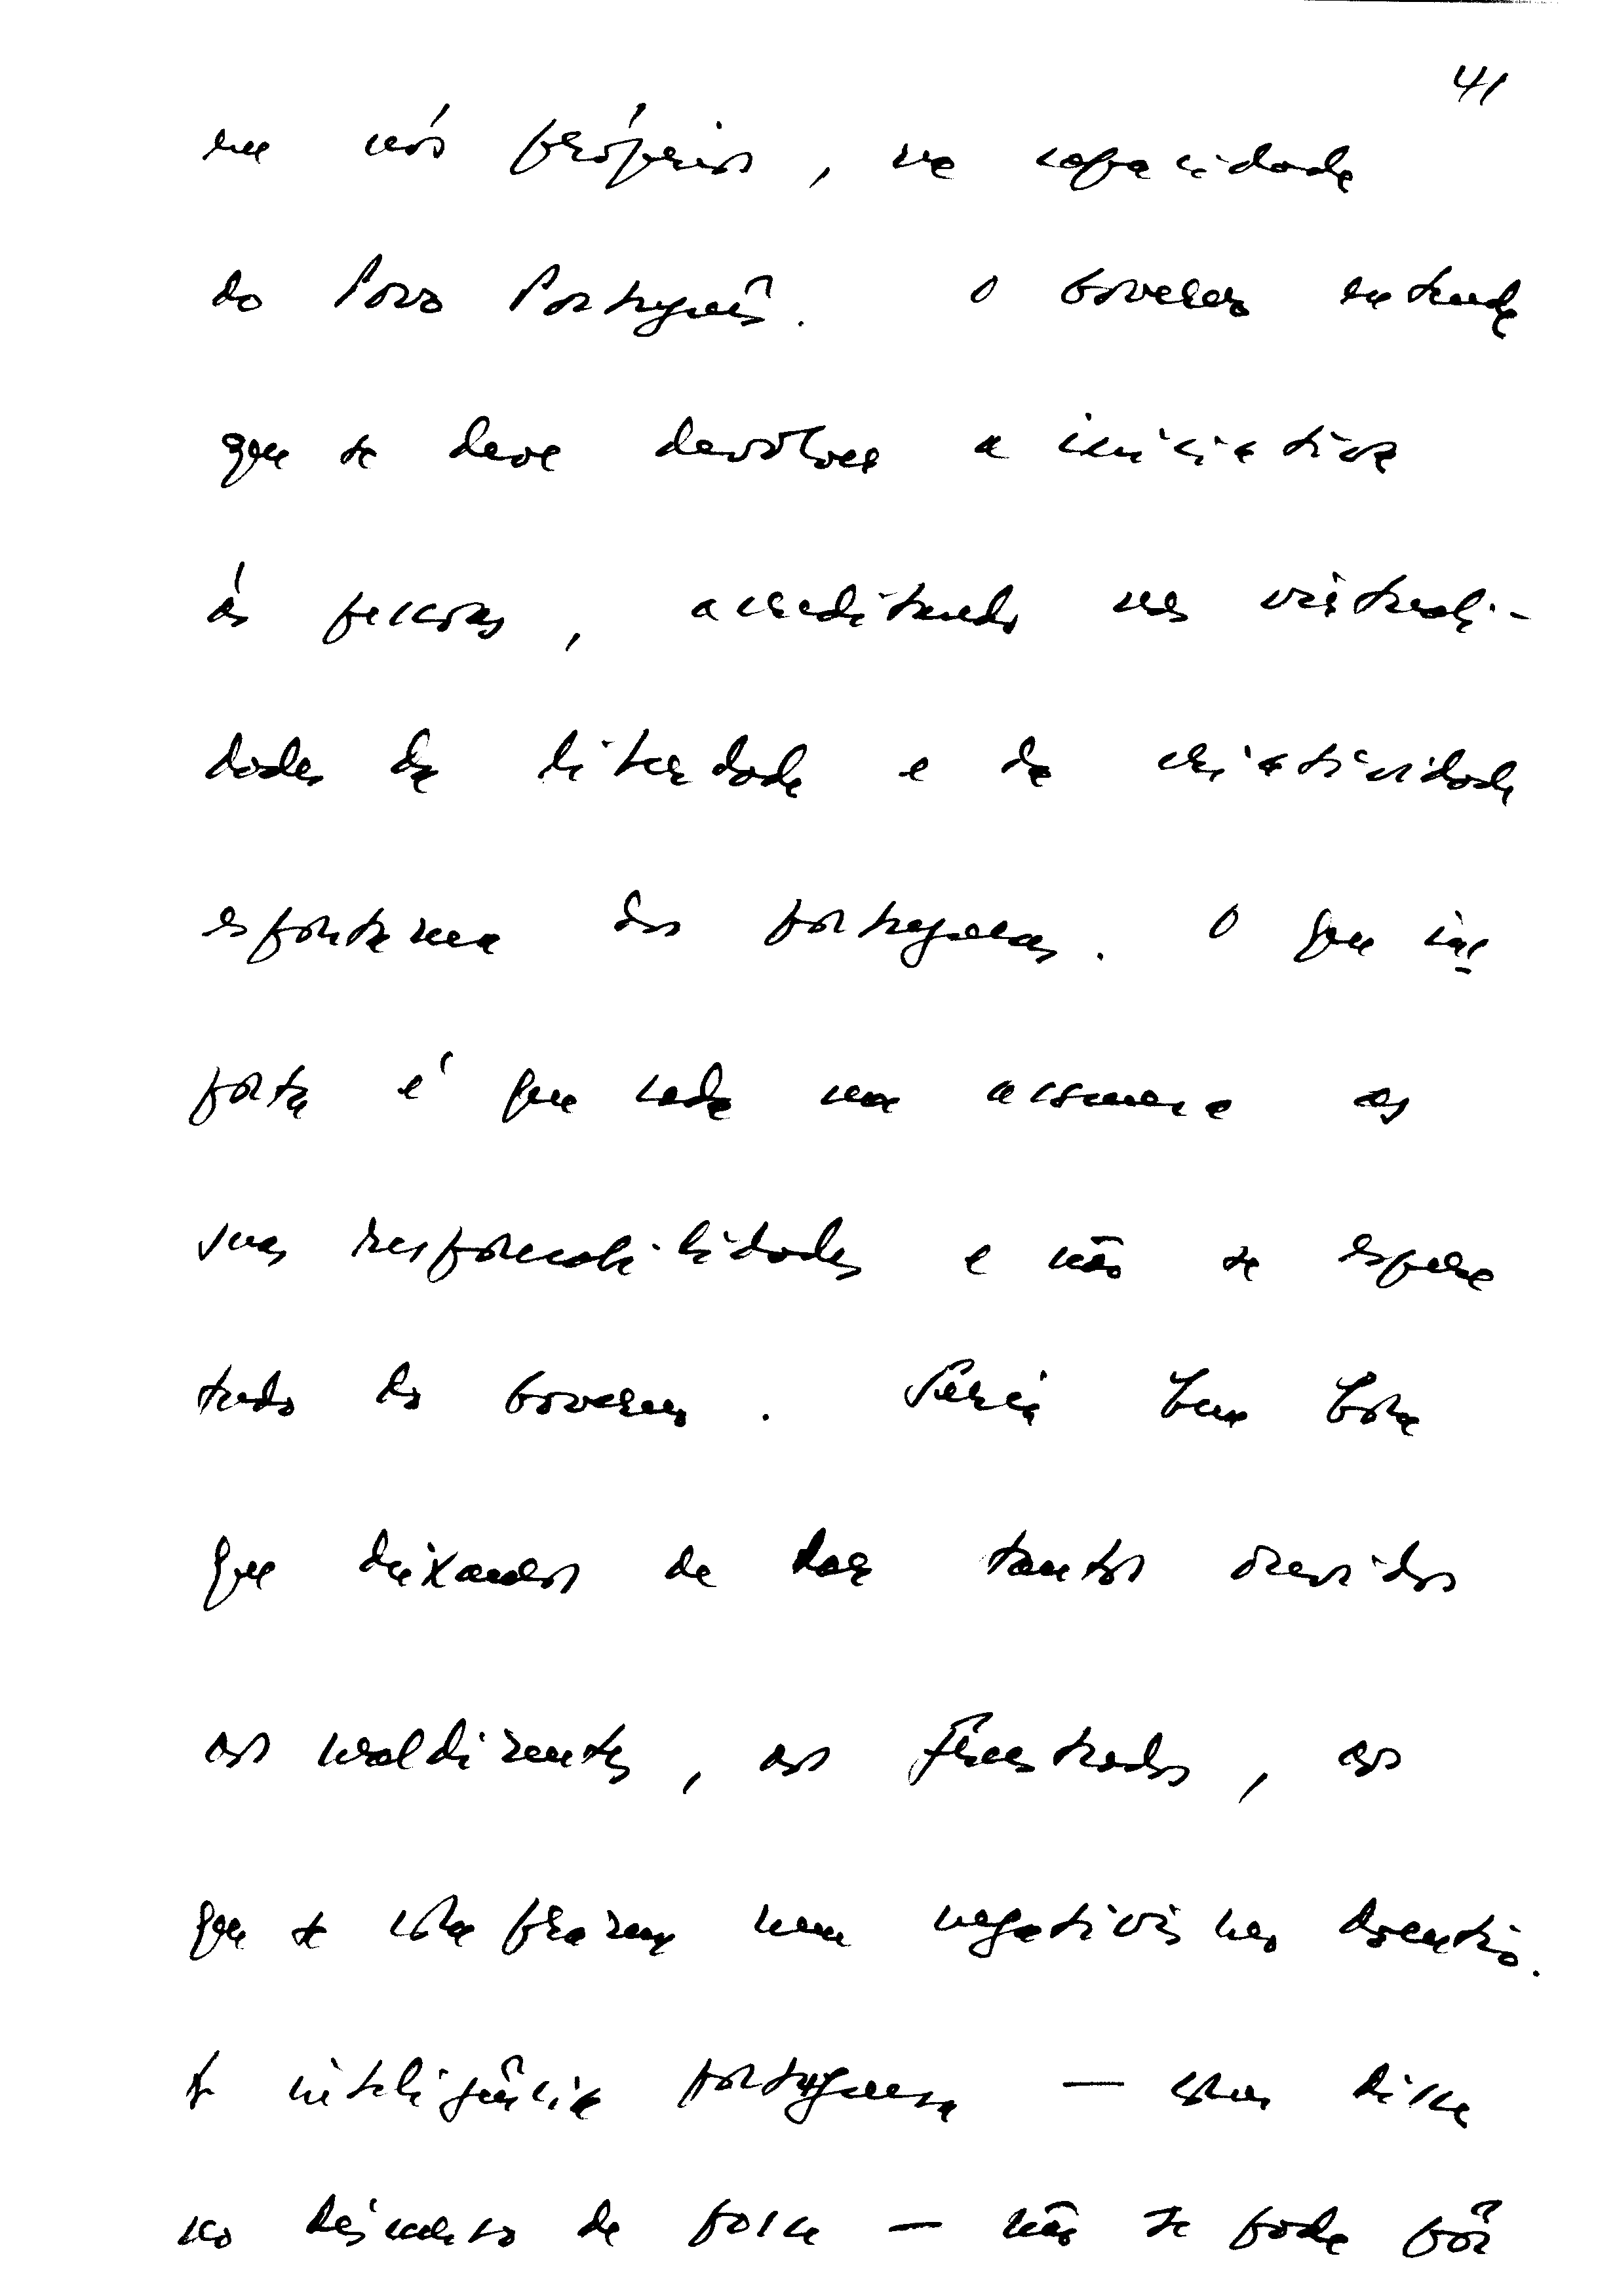 41
em nós próprios, na capacidade
do Povo Português. O Governo entende
que se deve devolver a iniciativa
às pessoas, acreditando nas virtuali-
dades da liberdade e da criatividade
espontânea dos portugueses. O que im
porta é que cada um assuma as
suas responsabilidades e não se espere
tudo do Governo. Seria bem bom
que deixamos de dar tantos ouvidos
aos maldizentes, aos frustrados, aos
que se comprazem num negativismo doentio.
A inteligência portuguesa — como disse
no discurso de posse — não se pode pôr